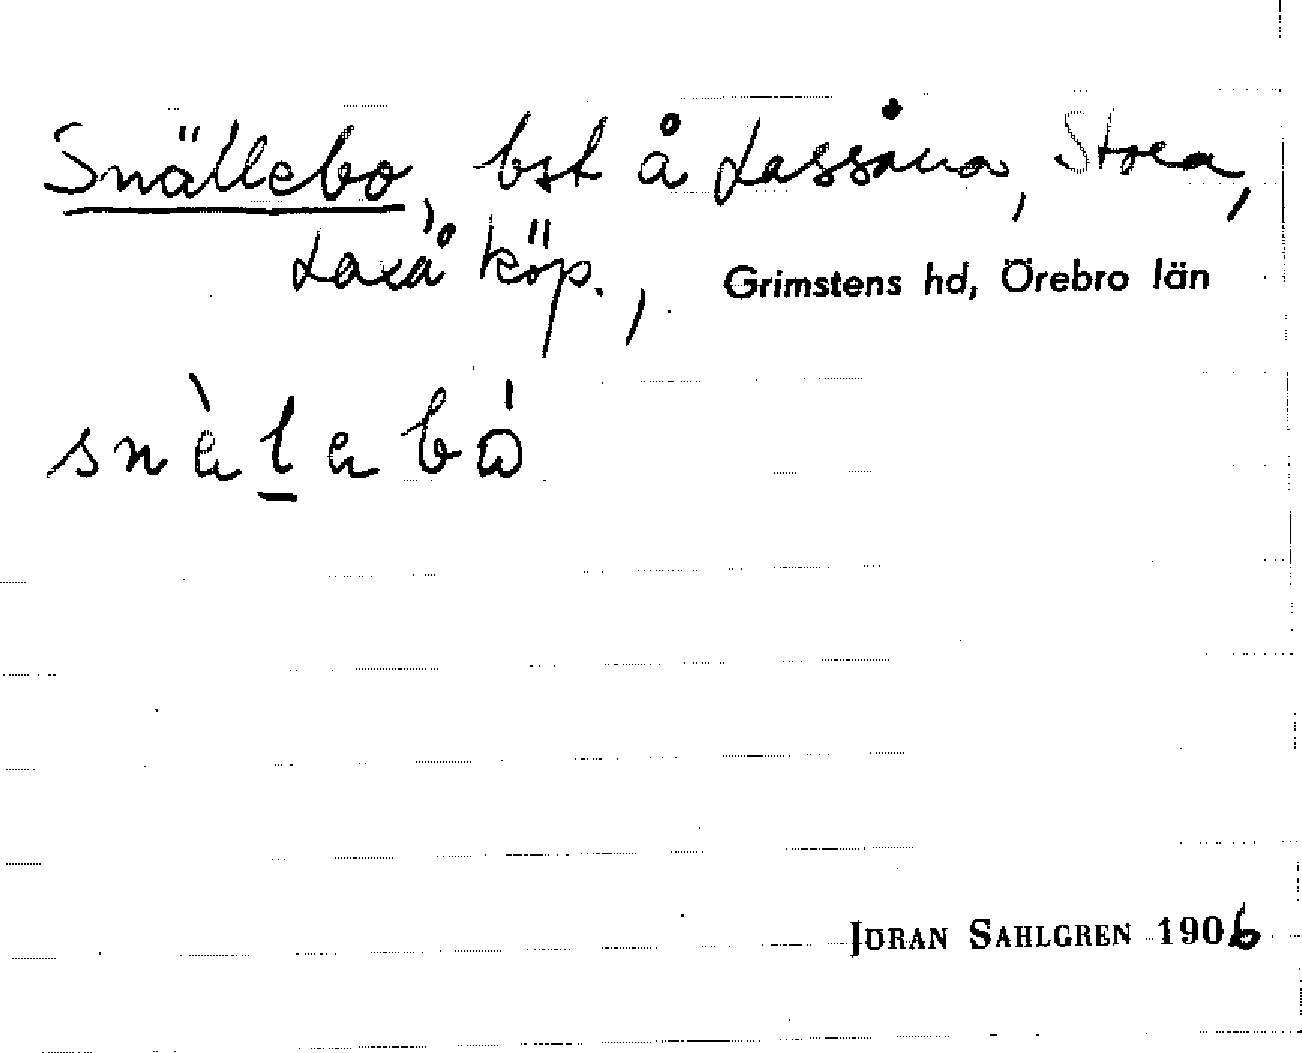 Snällebo, bst å Lassåna, Stora,
Laxå köp., Grimstens hd, Örebro län
snὰlabó
JÖRAN SAHLGREN 1906